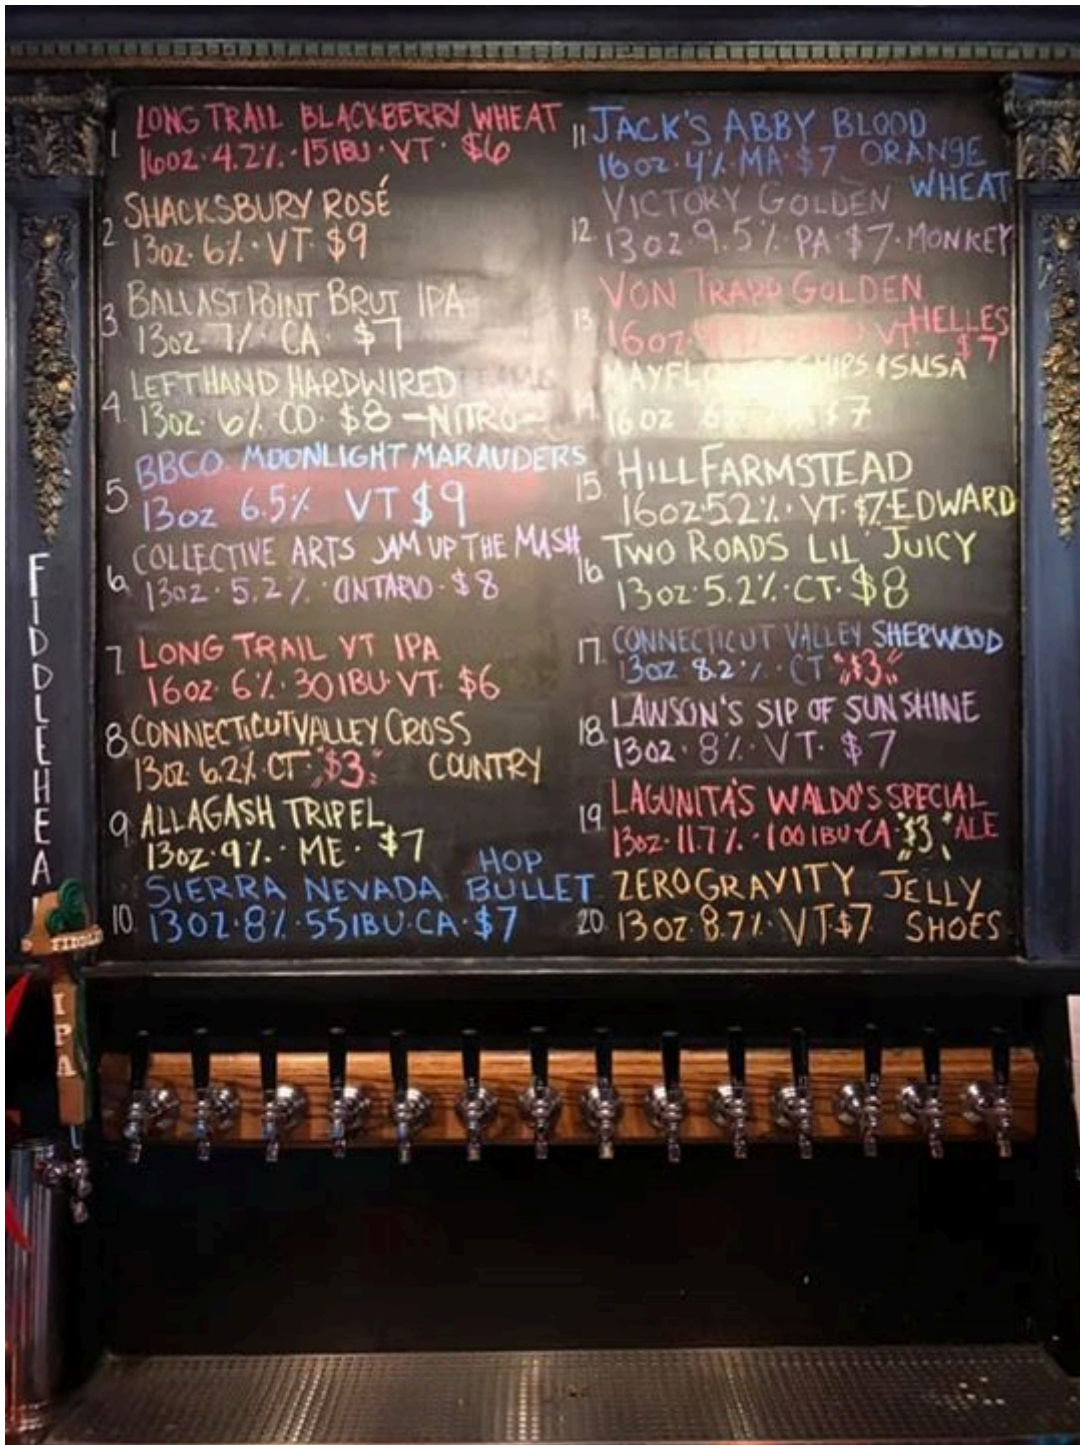 1 LONG TRAIL BLACKBERRY WHEAT
16OZ·4.2%·15IBU·VT·$6
2 SHACKSBURY ROSÉ
13OZ·6%·VT·$9
3 BALLAST POINT BRUT IPA
13OZ 7% CA $7
4. LEFTHAND HARDWIRED
13OZ·6% CO·$8 -NITRO-
5 BBCO. MOONLIGHT MARAUDERS
13OZ 6.5% VT $9
6. COLLECTIVE ARTS JAM UP THE MASH
13OZ·5.2%·ONTARIO·$8
7. LONG TRAIL VT IPA
16OZ·6%·30IBU·VT·$6
8 CONNECTICUT VALLEY CROSS
13OZ·6.2%·CT·$3 COUNTRY
9 ALLAGASH TRIPEL
13OZ·9%·ME·$7
HOP
SIERRA NEVADA BULLET
10. 13OZ·8%·55IBU·CA·$7
11 JACK'S ABBY BLOOD
16OZ·4%·MA·$7 ORANGE
WHEAT
VICTORY GOLDEN
12. 13OZ·9.5%·PA·$7·MONKEY
VON TRAPP GOLDEN
HELLES
13 16OZ VT $7
&SALSA
16OZ $7
HILL FARMSTEAD
15. 16OZ·5.2%·VT·$7·EDWARD
16. TWO ROADS LIL' JUICY
13OZ·5.2%·CT·$8
17. CONNECTICUT VALLEY SHERWOOD
13OZ 8.2%·CT $3
18. LAWSON'S SIP OF SUNSHINE
13OZ·8%·VT·$7
19. LAGUNITA'S WALDO'S SPECIAL
13OZ·11.7%·100IBU·CA $3 ALE
ZERO GRAVITY JELLY
20. 13OZ·8.7%·VT·$7 SHOES
FIDDLEHEA
IPA